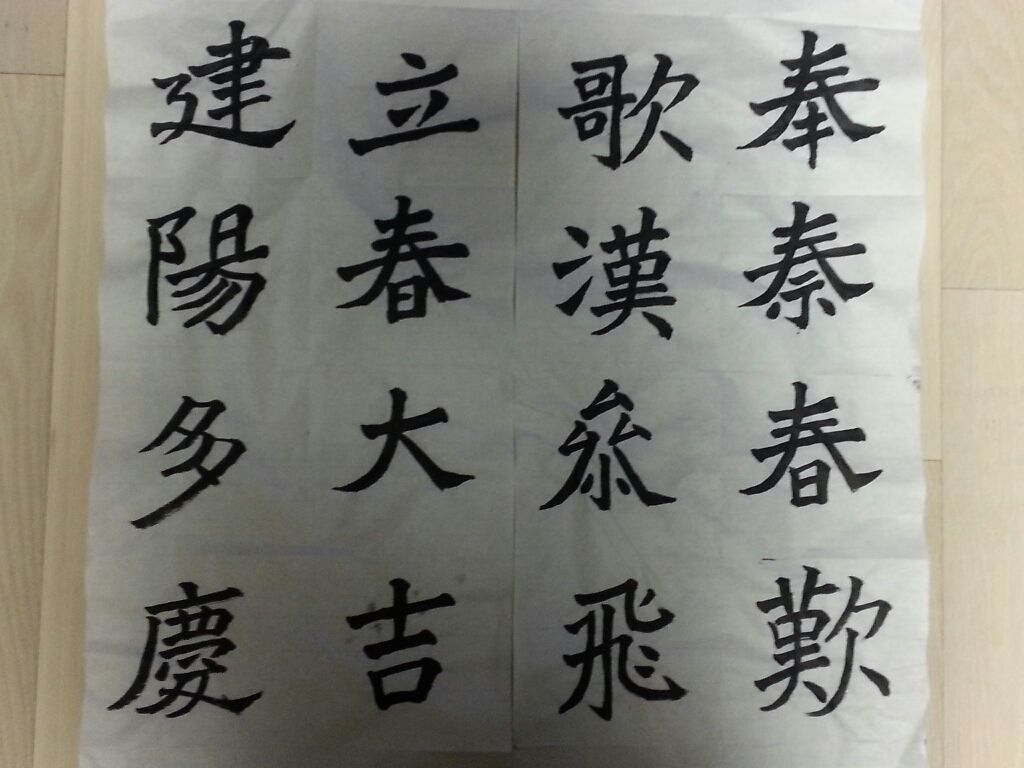 奉秦春歎
歌漢叅飛
立春大吉
建陽多慶